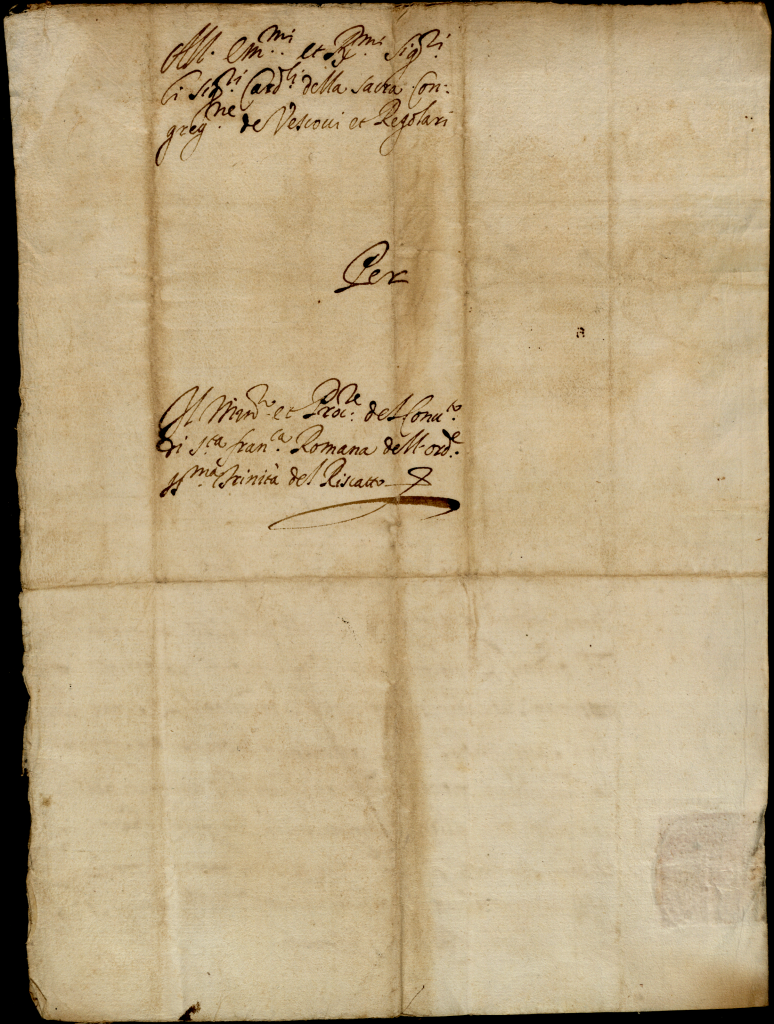 All. Em.mi et R.mi Sig.ri
li Sig.ri Card.li della sacra Con-
greg.ne de Vescovi et Regolari
Per
Il Minr.o et Proc.re del Conu.to
di S.ta Fran.ca Romana dell ord.e
SS.ma Trinità del Riscatto